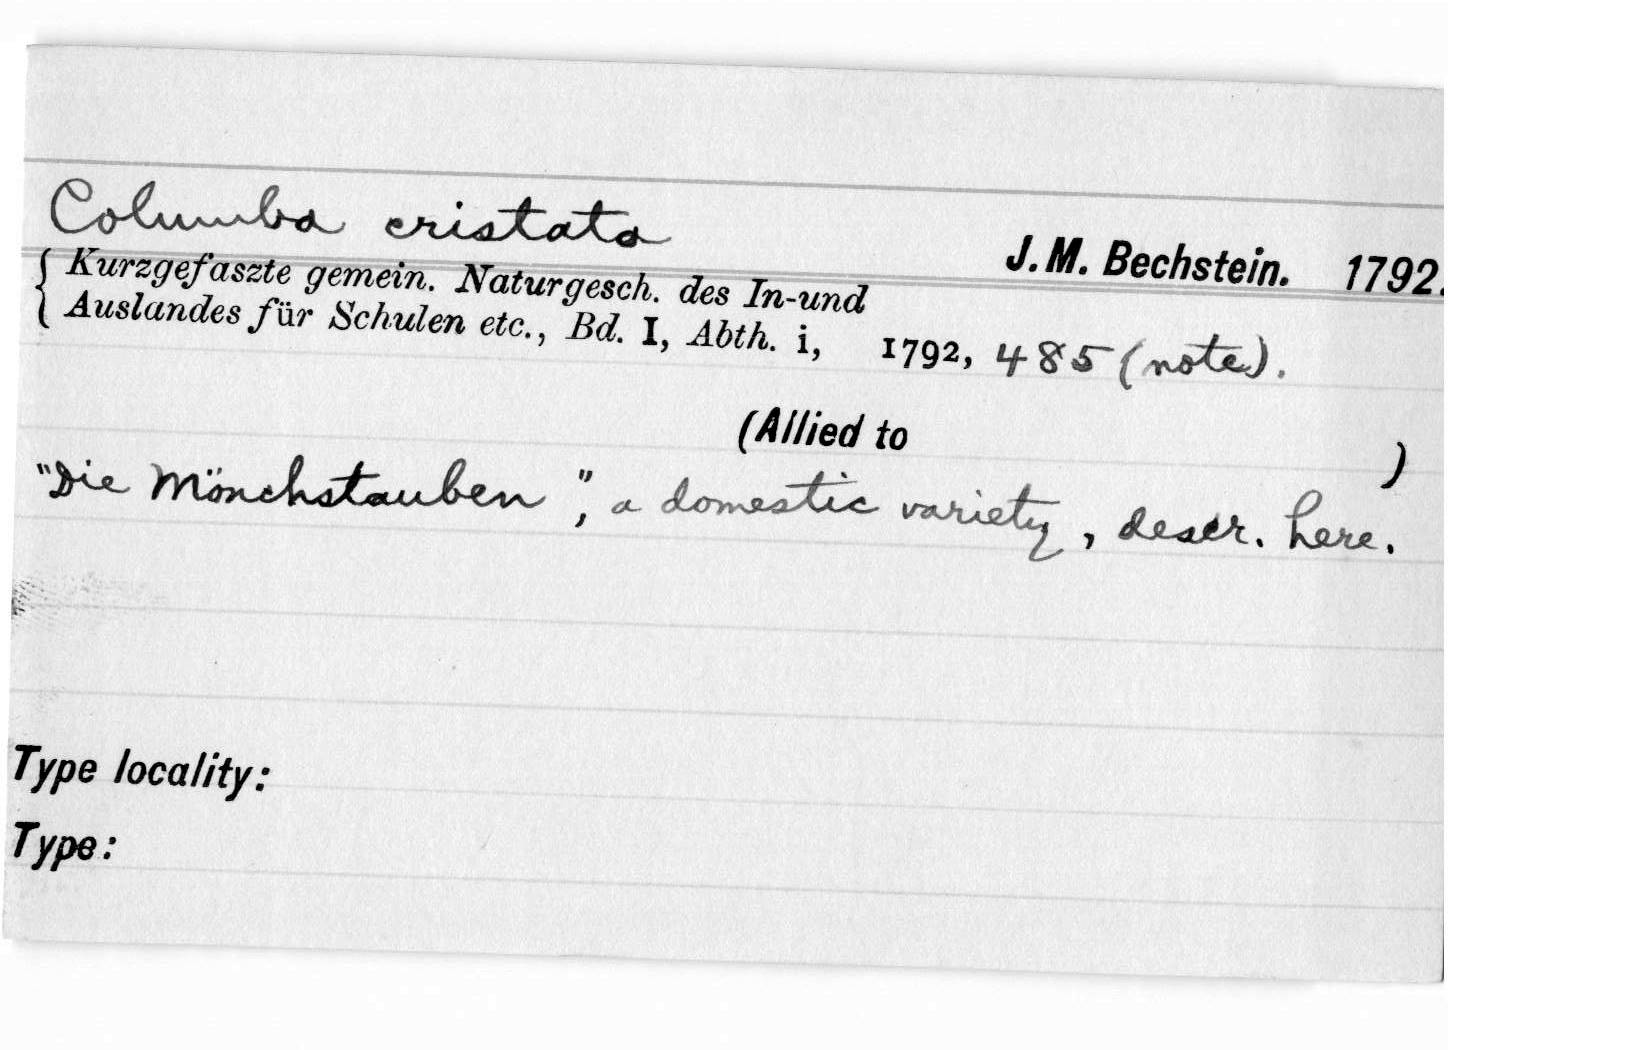 Columba cristata
J. M. Bechstein. 1792.
{ Kurzgefaszte gemein. Naturgesch. des In-und
Auslandes für Schulen etc., Bd. I, Abth. i, 1792, 485 (note).
(Allied to )
"Die Mönchstauben", a domestic variety, descr. here.
Type locality:
Type: